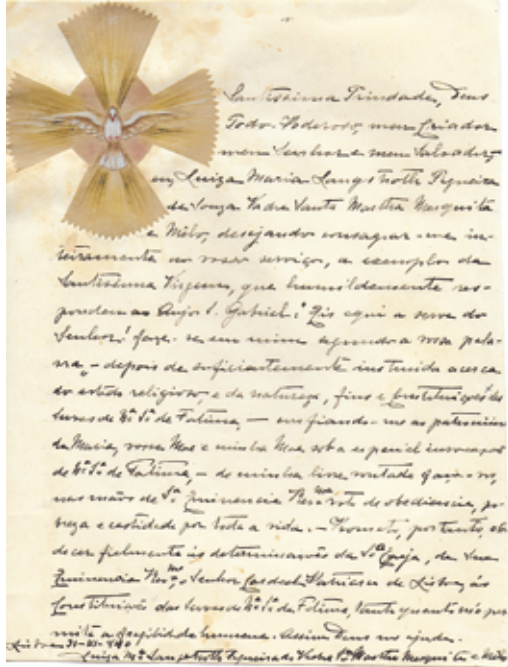 Santissima Trindade, Deus
Todo-Poderoso, meu Criador
meu Senhor e meu Salvador,
eu, Luiza Maria Langstroth Figueira
de Souza Vadre Santa Martha Mesquita
e Mélo, desejando consagrar-me in-
teiramente ao vosso serviço, a exemplo da
Santissima Virgem, que humildemente res-
pondeu ao Anjo S. Gabriel: "Eis aqui a serva do
Senhor! faça-se em mim segundo a vossa pala-
vra", - depois de suficientemente instruida acerca
do estado religioso, e da natureza, fins e Constituições das
Servas de Nª Sª de Fátima, - confiando-me ao patrocinio
de Maria, vossa Mãe e minha Mãe, sob a especial invocação
de Nª Sª de Fátima, - de minha livre vontade faço-vos,
nas mãos de Sª Eminencia Revma voto de obediencia, po-
breza e castidade por toda a vida. - Prometo, portanto, obe-
decer fielmente ás determinações da Sª Igreja, de Sua
Eminencia Revma o Senhor Cardeal Patriarca de Lisboa, ás
Constituições das Servas de Nª Sª de Fátima, tanto quanto m'o per-
mita a fragilidade humana. Assim Deus me ajude.
Lisboa
Luiza Mª Langstroth Figueira de Vadre Sta Martha Mesquita e Mélo